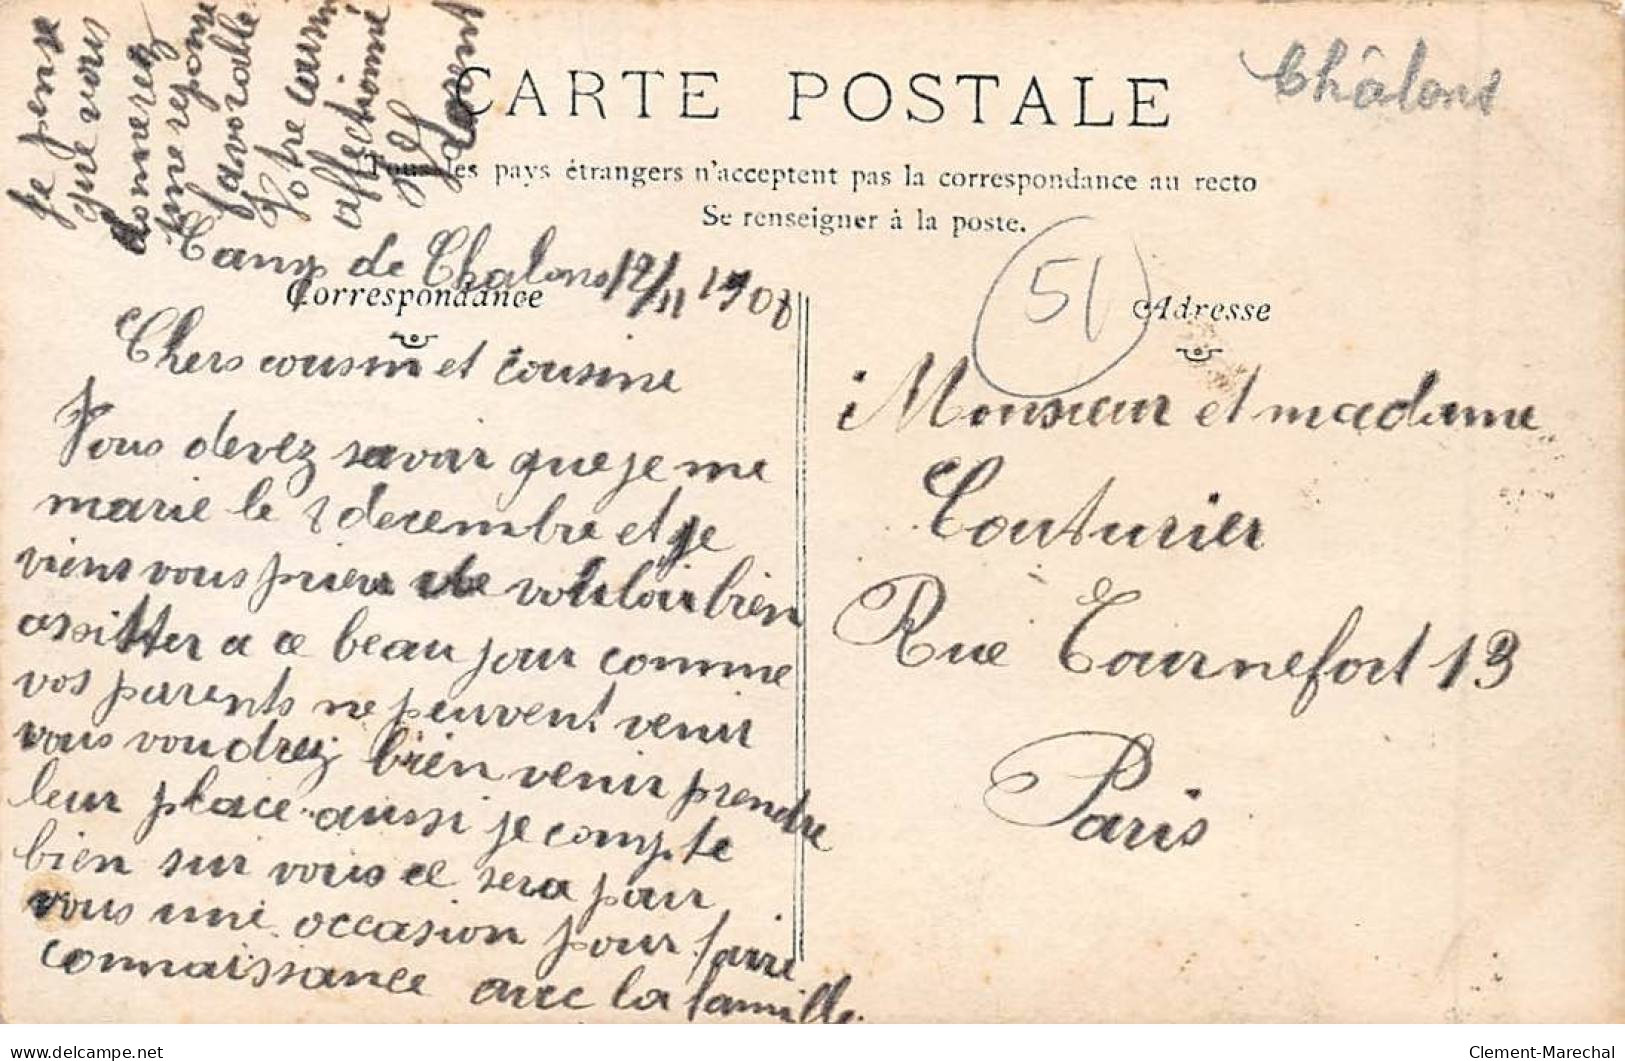 Je pense
que vous
donnerez
une reponse
favorable
Votre cousin
affectionné
Laurent
Châlons
CARTE POSTALE
Tous les pays étrangers n'acceptent pas la correspondance au recto
Se renseigner à la poste.
Camp de Chalons 12/11 1908
Correspondance
Chers cousin et cousine
Vous devez savoir que je me
marie le 1 decembre et je
viens vous prier de vouloir bien
assitter a ce beau jour comme
vos parents ne peuvent venir
vous voudrez bien venir prendre
leur place aussi je compte
bien sur vous ce sera pour
vous une occasion pour faire
connaissance avec la famille.
51
Adresse
Monsieur et madame
Couturier
Rue Tournefort 13
Paris
www.delcampe.net
Clement-Marechal